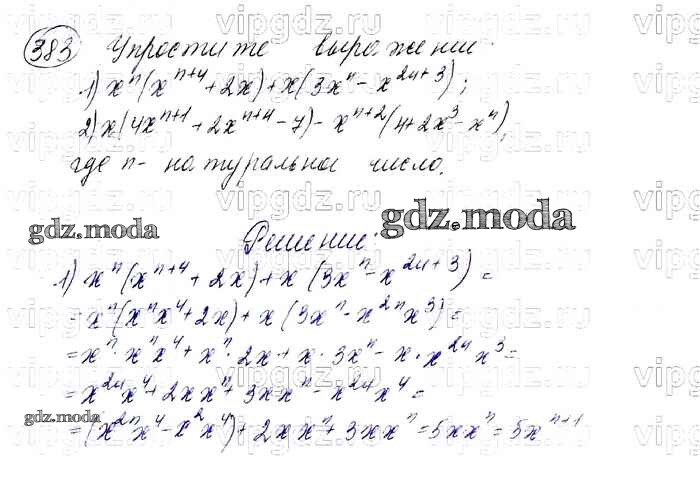 383 Упростите выражении
1) xⁿ(xⁿ⁺⁴ + 2x) + x(3xⁿ - x²ⁿ⁺³);
2) x(4xⁿ⁺¹ + 2xⁿ⁺⁴ - 7) - xⁿ⁺²(4 + 2x³ - xⁿ),
где n - натуральное число.
gdz.moda gdz.moda
Решении:
1) xⁿ(xⁿ⁺⁴ + 2x) + x (3xⁿ - x²ⁿ⁺³) =
= xⁿ(xⁿx⁴ + 2x) + x (3xⁿ - x²ⁿx³) =
= xⁿ · xⁿx⁴ + xⁿ · 2x + x · 3xⁿ - x · x²ⁿx³ =
= x²ⁿx⁴ + 2xxⁿ + 3xxⁿ - x²ⁿx⁴ =
gdz.moda
= (x²ⁿx⁴ - x²x⁴) + 2xxⁿ + 3xxⁿ = 5xxⁿ = 5xⁿ⁺¹
vipgdz.ru